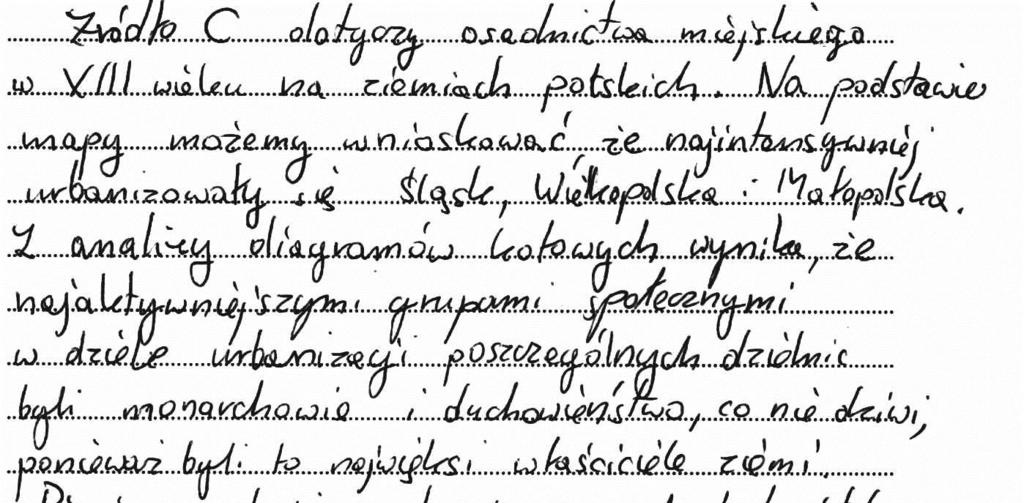 Źródło C dotyczy osadnictwa miejskiego
w XIII wieku na ziemiach polskich. Na podstawie
mapy możemy wnioskować, że najintensywniej
urbanizowały się Śląsk, Wielkopolska i Małopolska.
Z analizy diagramów kołowych wynika, że
najaktywniejszymi grupami społecznymi
w dziele urbanizacji poszczególnych dzielnic
byli monarchowie i duchowieństwo, co nie dziwi,
ponieważ byli to najwięksi właściciele ziemi.